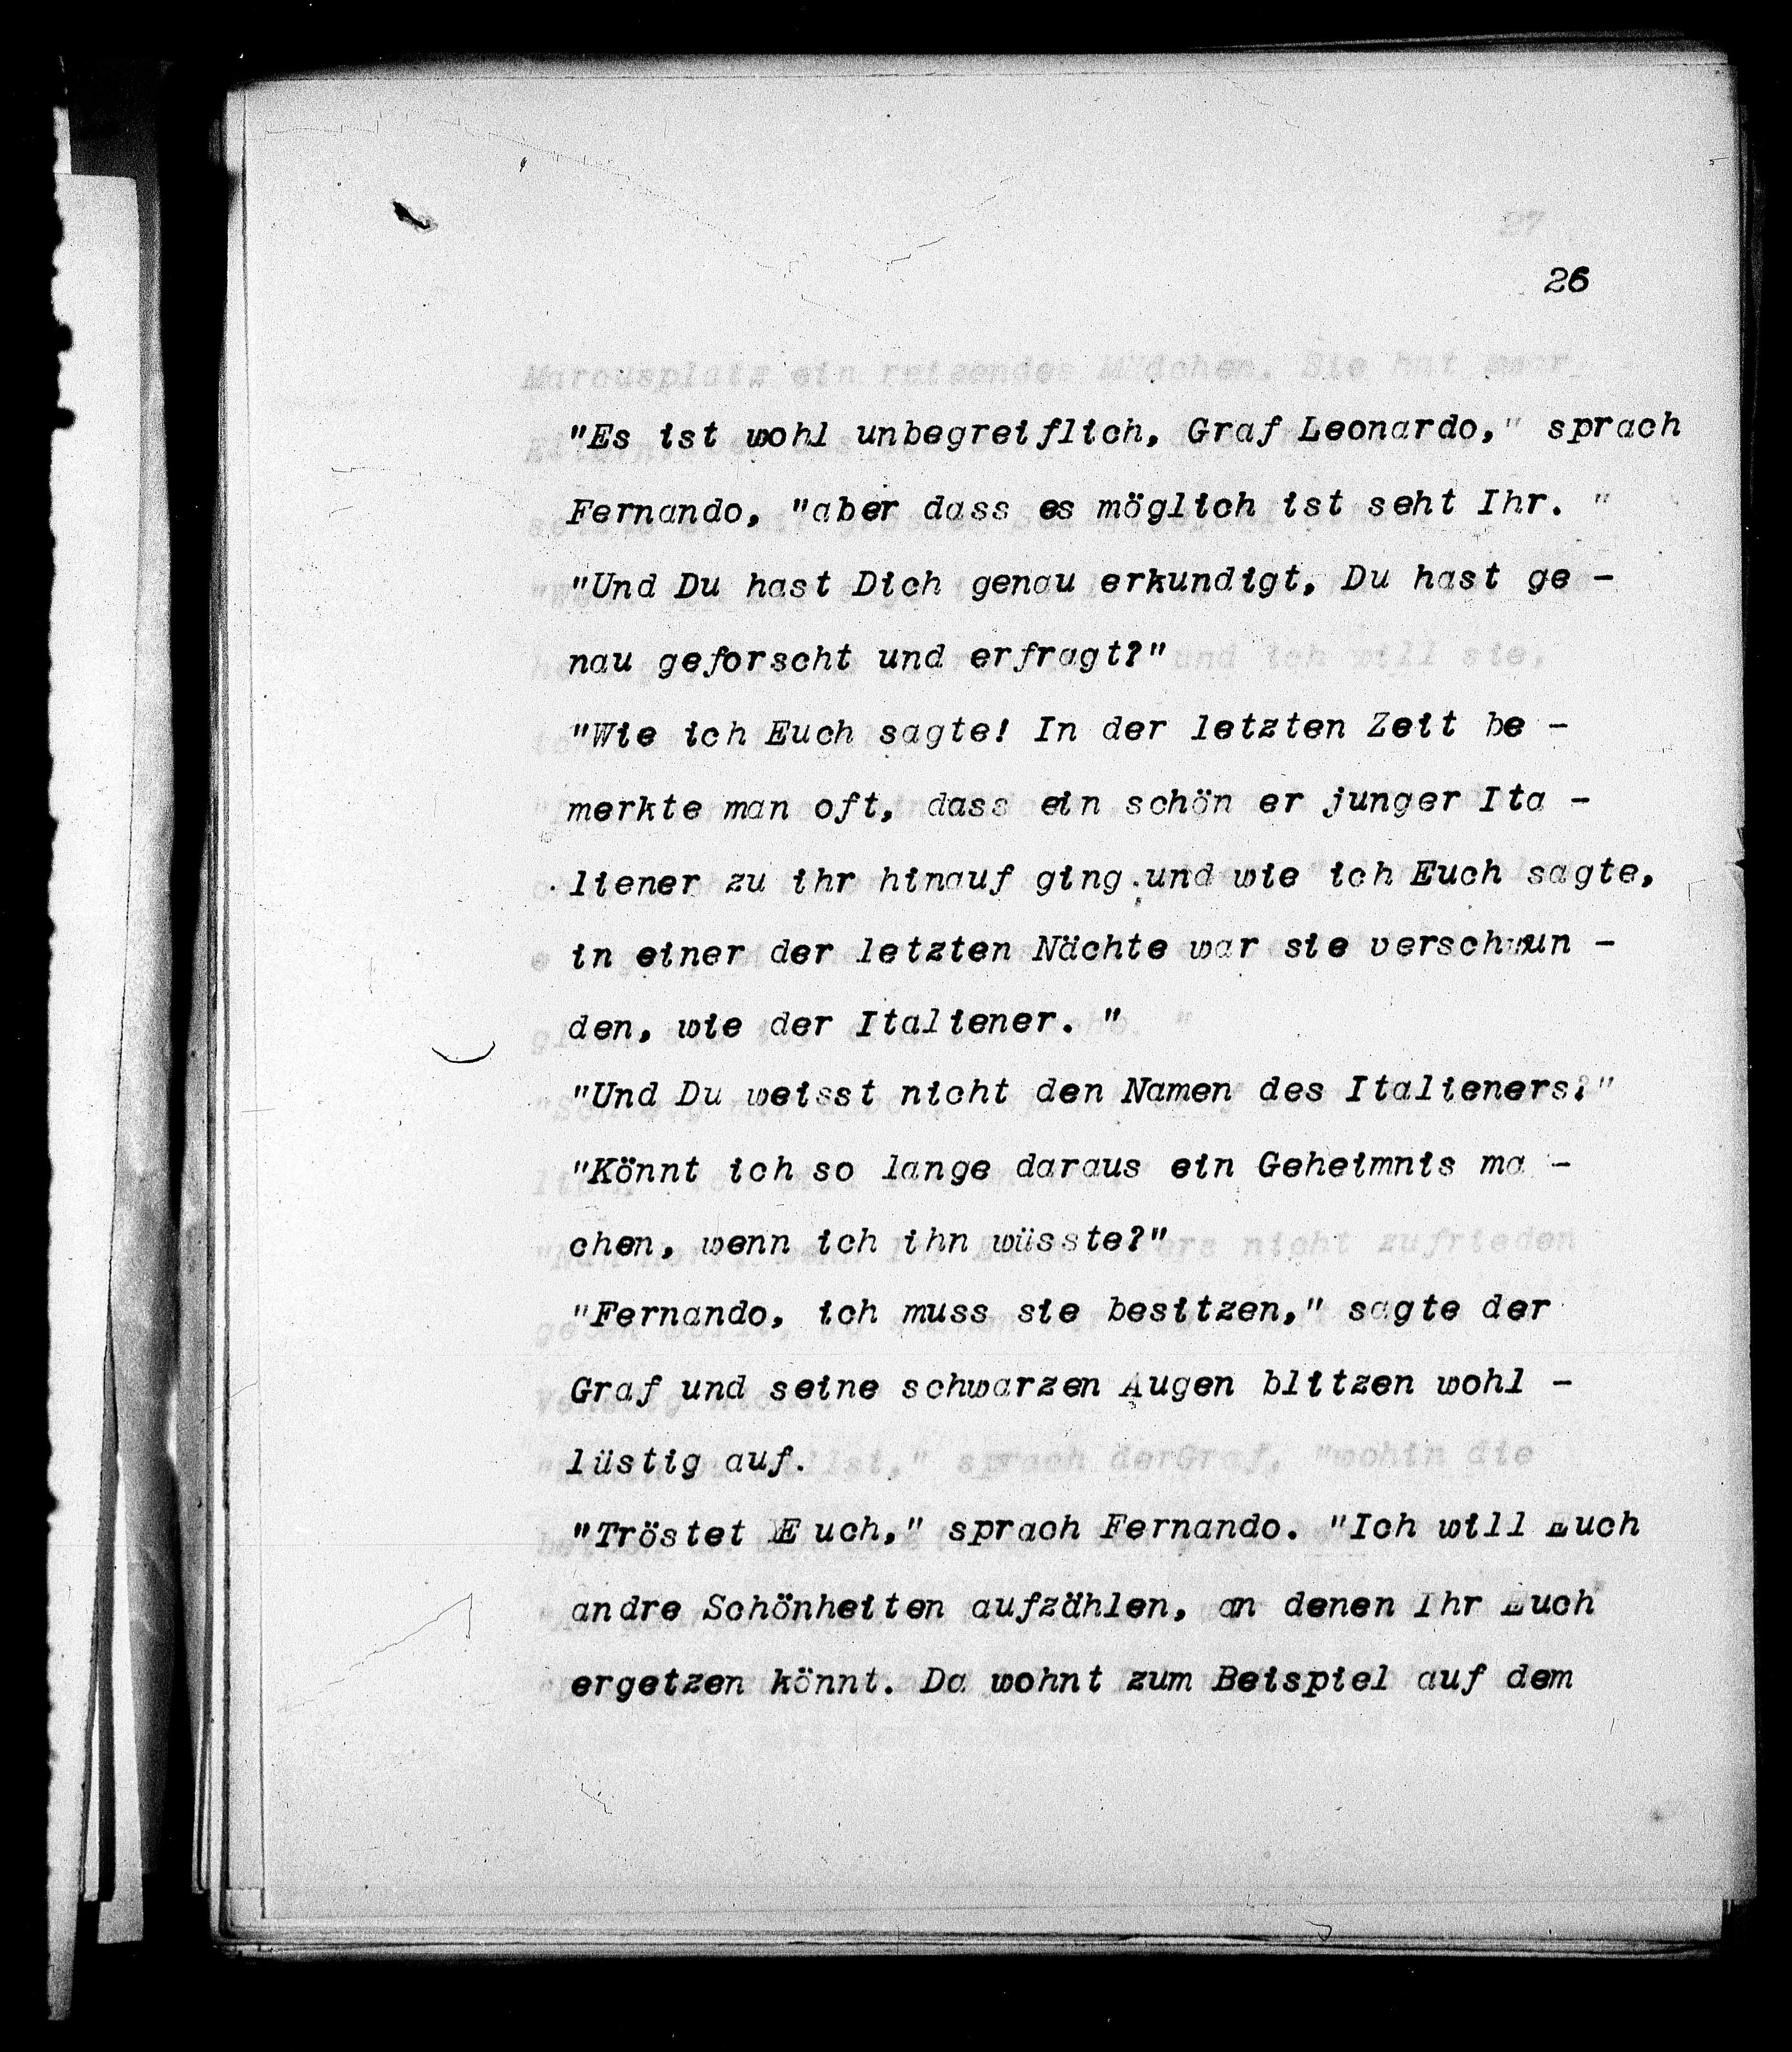 26
"Es ist wohl unbegreiflich, Graf Leonardo," sprach
Fernando, "aber dass es möglich ist seht Ihr. "
"Und Du hast Dich genau erkundigt, Du hast ge -
nau geforscht und erfragt?"
"Wie ich Euch sagte! In der letzten Zeit be -
merkte man oft, dass ein schön er junger Ita -
liener zu ihr hinauf ging.und wie ich Euch sagte,
in einer der letzten Nächte war sie verschwun -
den, wie der Italiener. "
"Und Du weisst nicht den Namen des Italieners?"
"Könnt ich so lange daraus ein Geheimnis ma -
chen, wenn ich ihn wüsste?"
"Fernando, ich muss sie besitzen," sagte der
Graf und seine schwarzen Augen blitzen wohl -
lüstig auf.
"Tröstet Euch," sprach Fernando. "Ich will Euch
andre Schönheiten aufzählen, an denen Ihr Euch
ergetzen könnt. Da wohnt zum Beispiel auf dem